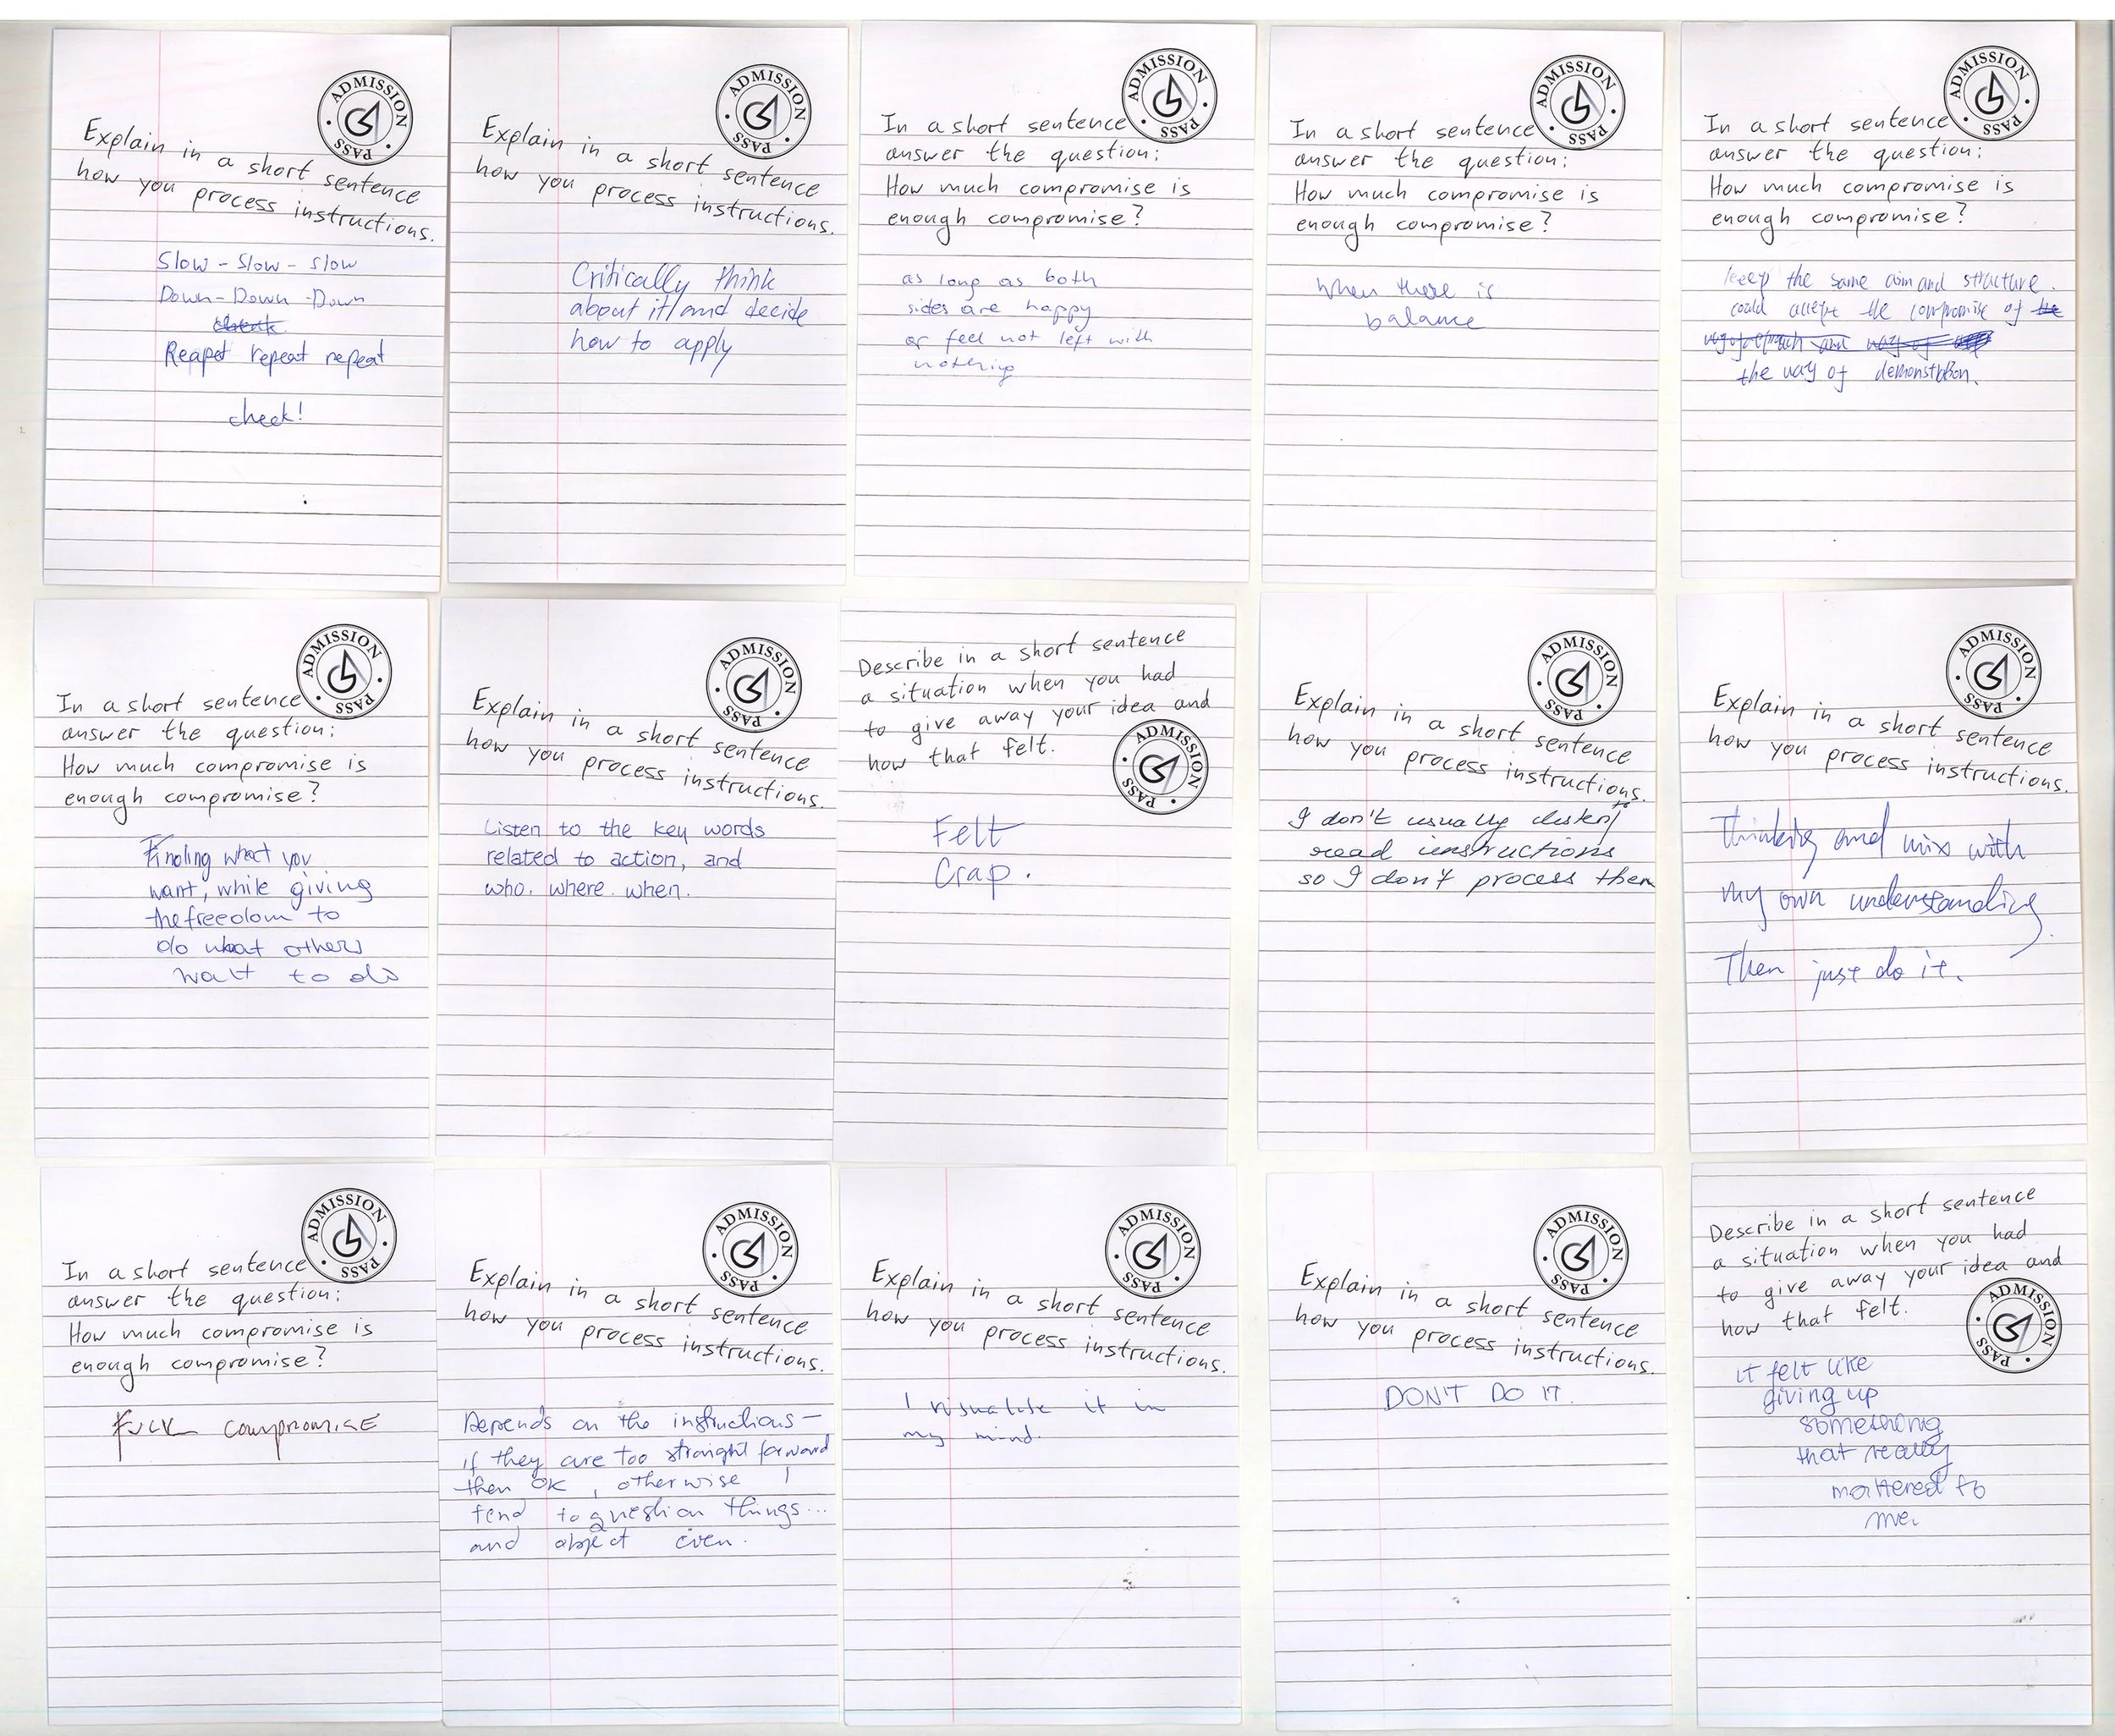 ADMISSION PASS
Explain in a short sentence
how you process instructions.
Slow - Slow - slow
Down - Down - Down
Reapet repeat repeat
check!
ADMISSION PASS
Explain in a short sentence
how you process instructions.
Critically think
about it/and decide
how to apply
ADMISSION PASS
In a short sentence
answer the question:
How much compromise is
enough compromise?
as long as both
sides are happy
or feel not left with
nothing
ADMISSION PASS
In a short sentence
answer the question:
How much compromise is
enough compromise?
When there is
balance
ADMISSION PASS
In a short sentence
answer the question:
How much compromise is
enough compromise?
keep the same aim and structure.
could accept the compromise of the
the way of demonstration.
ADMISSION PASS
In a short sentence
answer the question:
How much compromise is
enough compromise?
Finding what you
want, while giving
the freedom to
do what others
want to do
ADMISSION PASS
Explain in a short sentence
how you process instructions.
Listen to the key words
related to action, and
who. where. when.
Describe in a short sentence
a situation when you had
to give away your idea and
how that felt.
ADMISSION PASS
Felt
Crap.
ADMISSION PASS
Explain in a short sentence
how you process instructions.
I don't usually listen to/
read instructions
so I don't process them
ADMISSION PASS
Explain in a short sentence
how you process instructions.
Thinking and mix with
my own understanding.
Then just do it.
ADMISSION PASS
In a short sentence
answer the question:
How much compromise is
enough compromise?
FUCK COMPROMISE
ADMISSION PASS
Explain in a short sentence
how you process instructions.
Depends on the instructions –
if they are too straight forward
then OK, otherwise I
tend to question things...
and object even.
ADMISSION PASS
Explain in a short sentence
how you process instructions.
I visualise it in
my mind.
ADMISSION PASS
Explain in a short sentence
how you process instructions.
DON'T DO IT.
Describe in a short sentence
a situation when you had
to give away your idea and
how that felt.
ADMISSION PASS
it felt like
giving up
something
that really
mattered to
me.